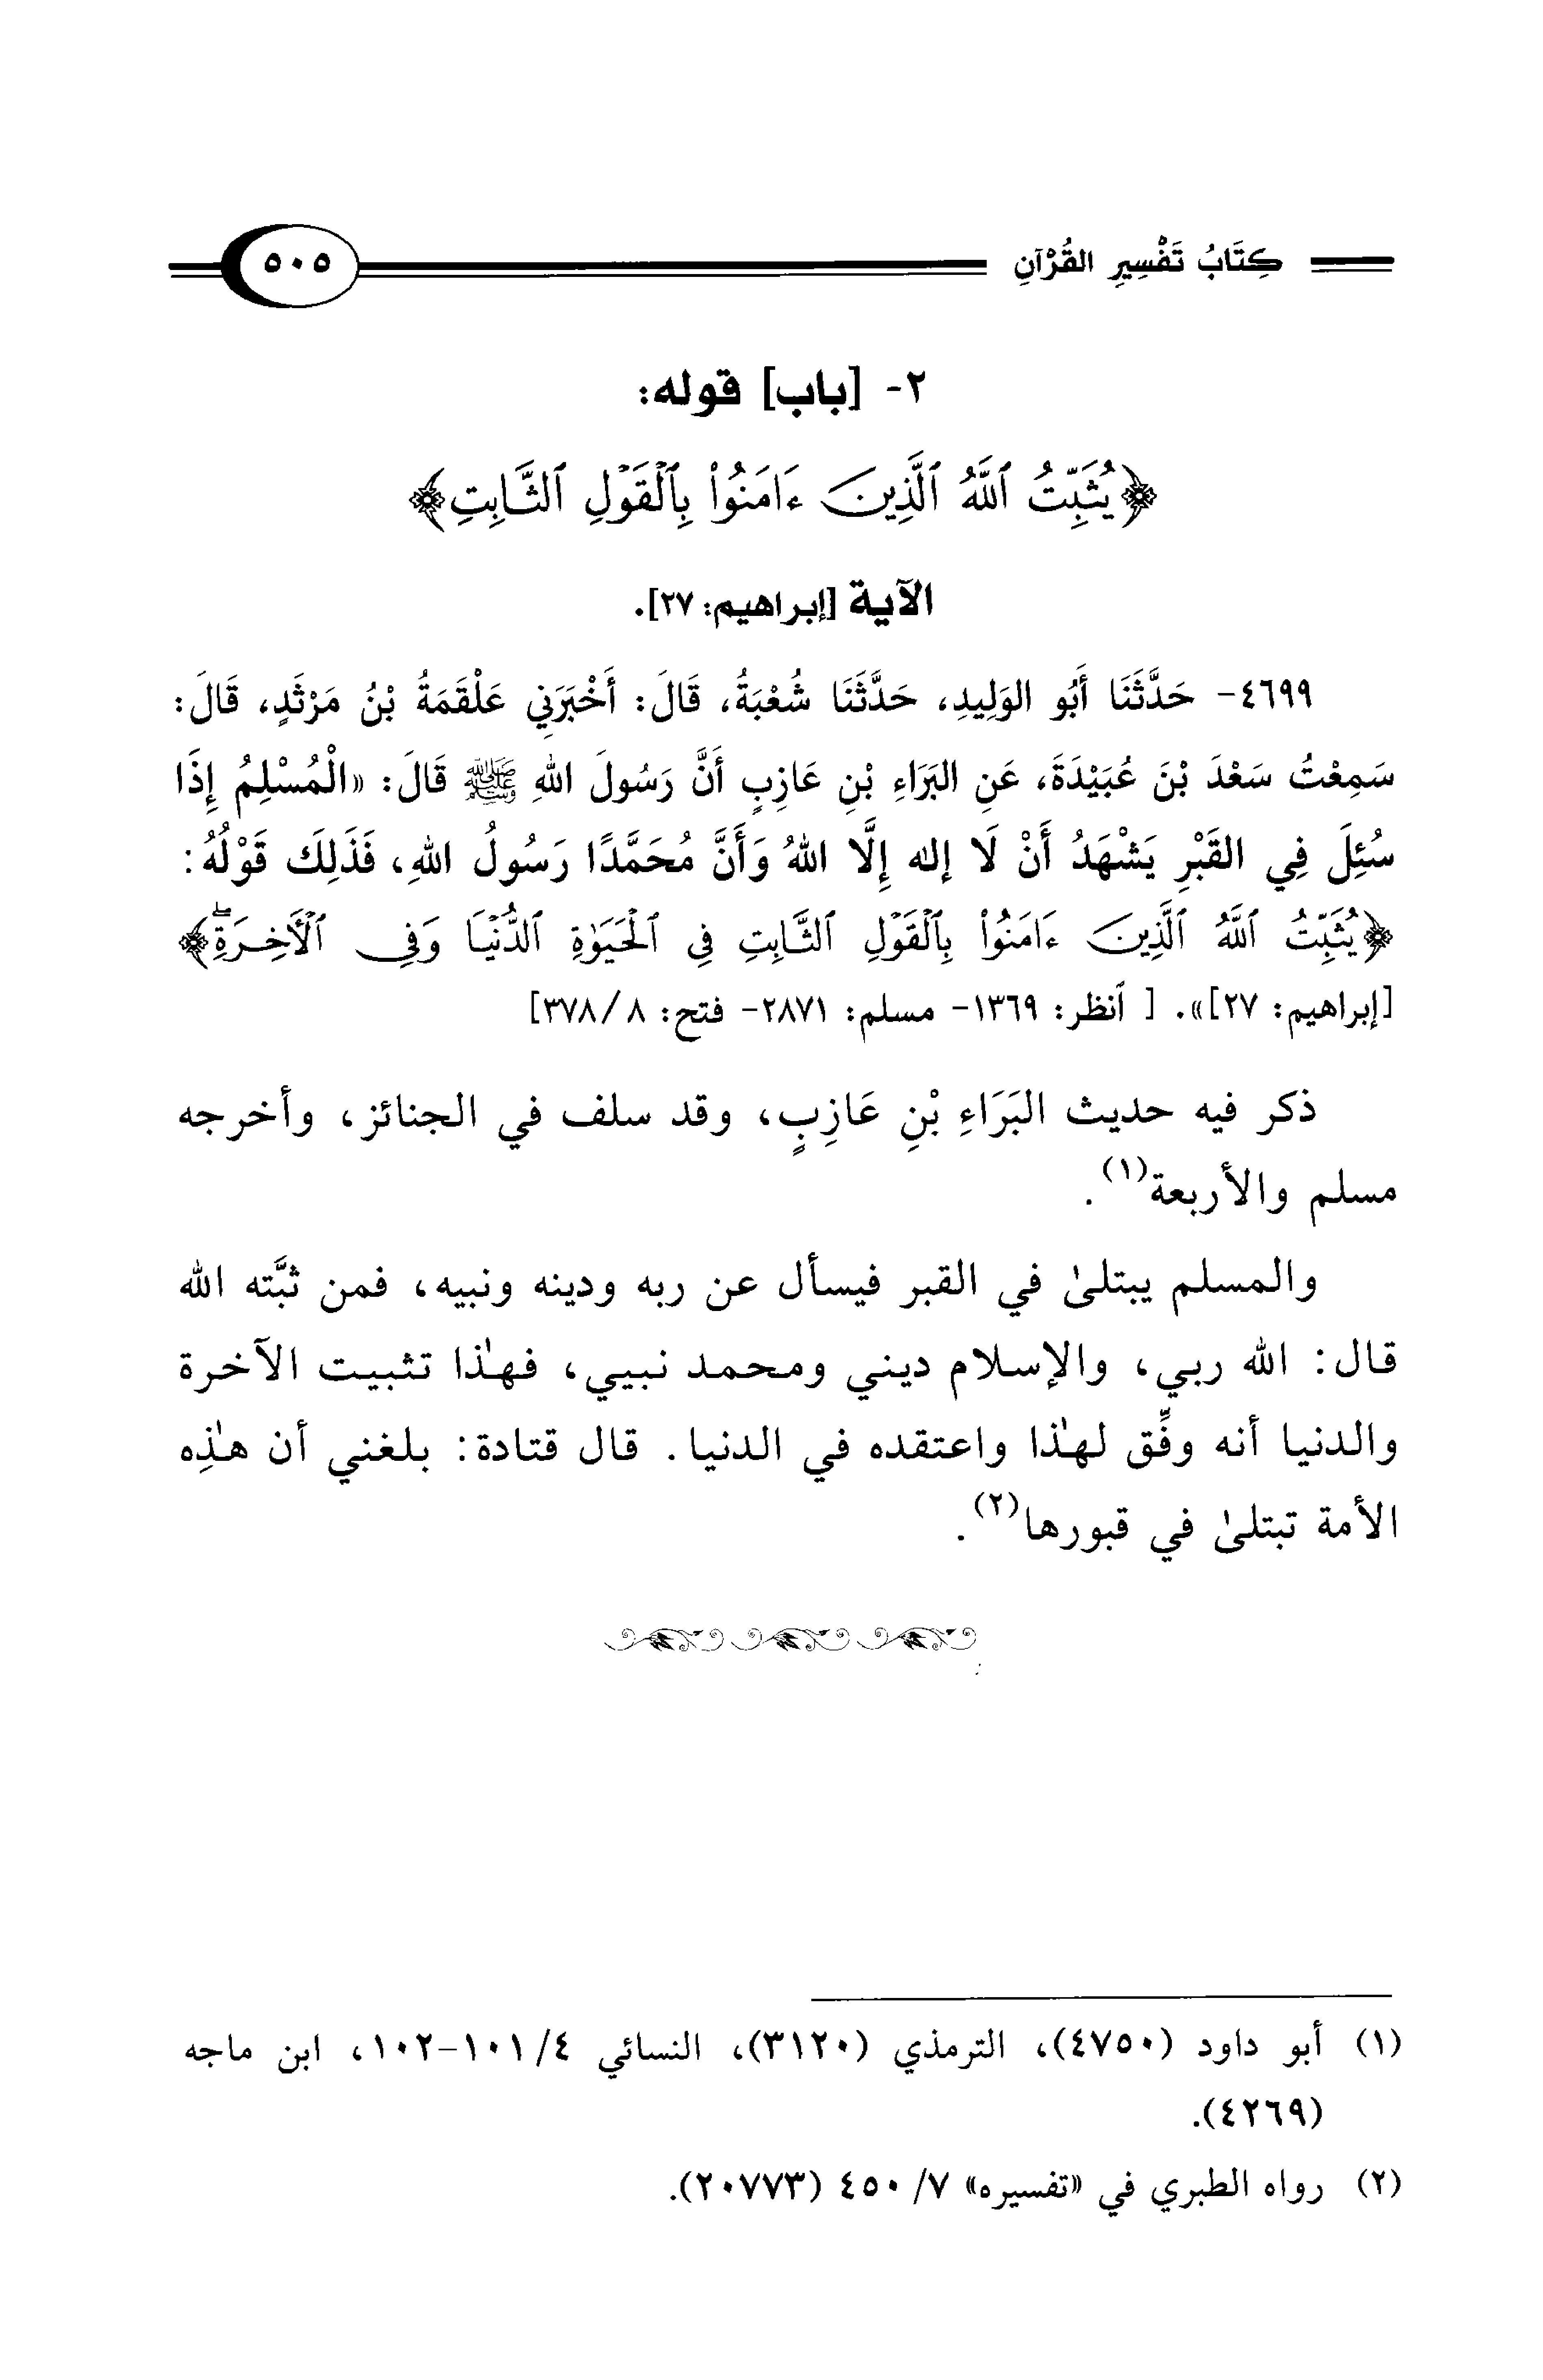 كِتَابُ تَفْسِيرِ القُرْآنِ ٥٠٥
٢- [باب] قوله:
﴿يُثَبِّتُ ٱللَّهُ ٱلَّذِينَ ءَامَنُوا۟ بِٱلْقَوْلِ ٱلثَّابِتِ﴾
الآية [إبراهيم: ٢٧].
٤٦٩٩- حَدَّثَنَا أَبُو الوَلِيدِ، حَدَّثَنَا شُعْبَةُ، قَالَ: أَخْبَرَنِي عَلْقَمَةُ بْنُ مَرْثَدٍ، قَالَ:
سَمِعْتُ سَعْدَ بْنَ عُبَيْدَةَ، عَنِ البَرَاءِ بْنِ عَازِبٍ أَنَّ رَسُولَ اللهِ ﷺ قَالَ: «الْمُسْلِمُ إِذَا
سُئِلَ فِي القَبْرِ يَشْهَدُ أَنْ لَا إله إِلَّا اللهُ وَأَنَّ مُحَمَّدًا رَسُولُ اللهِ، فَذَلِكَ قَوْلُهُ:
﴿يُثَبِّتُ ٱللَّهُ ٱلَّذِينَ ءَامَنُوا۟ بِٱلْقَوْلِ ٱلثَّابِتِ فِى ٱلْحَيَوٰةِ ٱلدُّنْيَا وَفِى ٱلْأَخِرَةِۖ﴾
[إبراهيم: ٢٧]». [ أنظر: ١٣٦٩- مسلم: ٢٨٧١- فتح: ٨/ ٣٧٨]
ذكر فيه حديث البَرَاءِ بْنِ عَازِبٍ، وقد سلف في الجنائز، وأخرجه
مسلم والأربعة(١).
والمسلم يبتلىٰ في القبر فيسأل عن ربه ودينه ونبيه، فمن ثبَّته الله
قال: الله ربي، والإسلام ديني ومحمد نبيي، فهٰذا تثبيت الآخرة
والدنيا أنه وفِّق لهٰذا واعتقده في الدنيا. قال قتادة: بلغني أن هٰذِه
الأمة تبتلىٰ في قبورها(٢).
(١) أبو داود (٤٧٥٠)، الترمذي (٣١٢٠)، النسائي ٤/ ١٠١-١٠٢، ابن ماجه
(٤٢٦٩).
(٢) رواه الطبري في «تفسيره» ٧/ ٤٥٠ (٢٠٧٧٣).